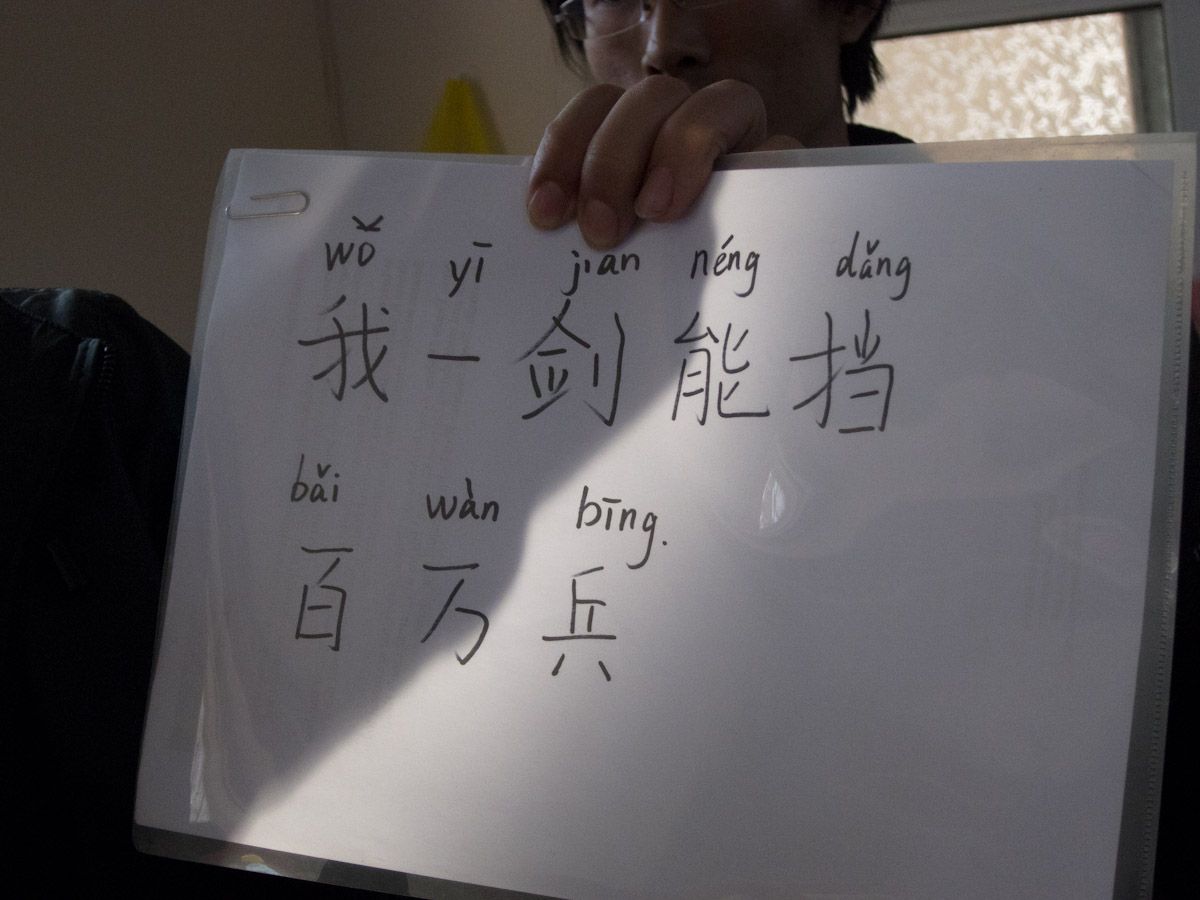 wǒ yī jian néng dǎng
我一剑能挡
bǎi wàn bīng.
百万兵